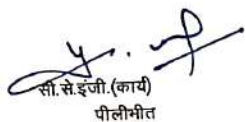 सी.से.इंजी.(कार्य)
पीलीभीत